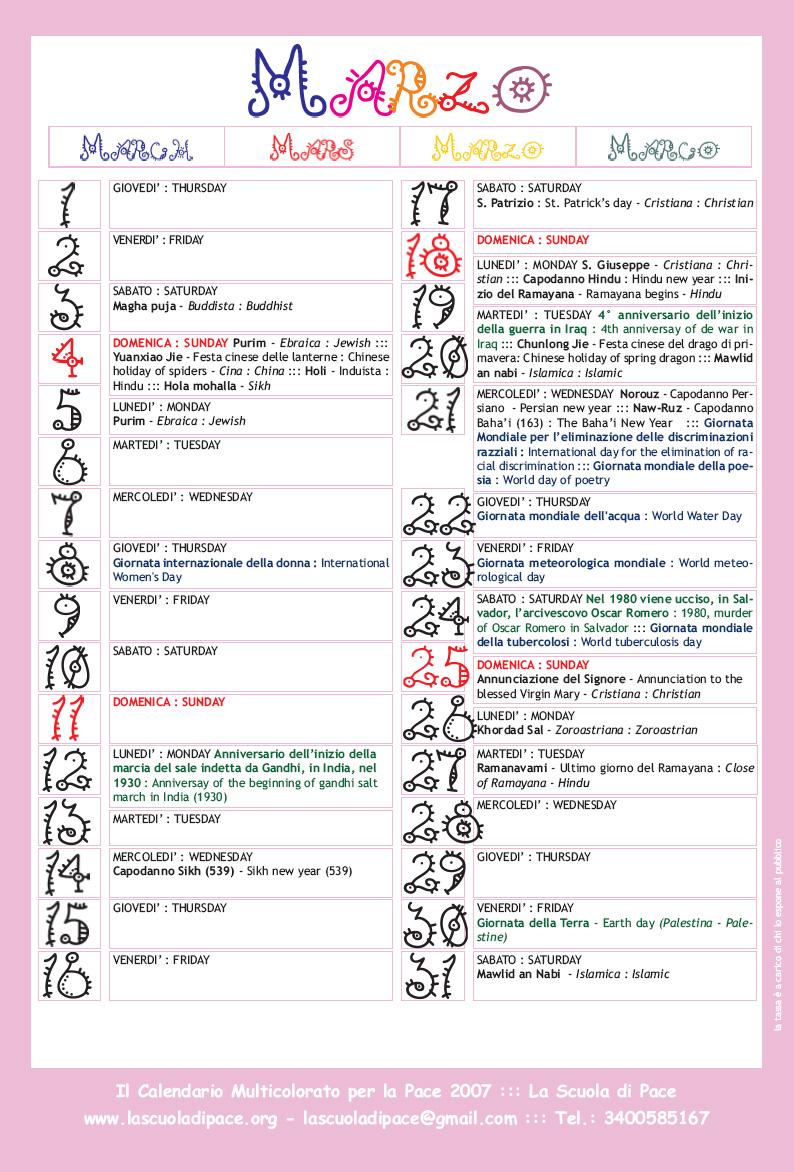 MARZO
MARCH MARS MARZO MARÇO
1 GIOVEDI’ : THURSDAY
2 VENERDI’ : FRIDAY
3 SABATO : SATURDAY
Magha puja - Buddista : Buddhist
4 DOMENICA : SUNDAY Purim - Ebraica : Jewish :::
Yuanxiao Jie - Festa cinese delle lanterne : Chinese
holiday of spiders - Cina : China ::: Holi - Induista :
Hindu ::: Hola mohalla - Sikh
5 LUNEDI’ : MONDAY
Purim - Ebraica : Jewish
6 MARTEDI’ : TUESDAY
7 MERCOLEDI’ : WEDNESDAY
8 GIOVEDI’ : THURSDAY
Giornata internazionale della donna : International
Women's Day
9 VENERDI’ : FRIDAY
10 SABATO : SATURDAY
11 DOMENICA : SUNDAY
12 LUNEDI’ : MONDAY Anniversario dell’inizio della
marcia del sale indetta da Gandhi, in India, nel
1930 : Anniversay of the beginning of gandhi salt
march in India (1930)
13 MARTEDI’ : TUESDAY
14 MERCOLEDI’ : WEDNESDAY
Capodanno Sikh (539) - Sikh new year (539)
15 GIOVEDI’ : THURSDAY
16 VENERDI’ : FRIDAY
17 SABATO : SATURDAY
S. Patrizio : St. Patrick’s day - Cristiana : Christian
18 DOMENICA : SUNDAY
19 LUNEDI’ : MONDAY S. Giuseppe - Cristiana : Chri-
stian ::: Capodanno Hindu : Hindu new year ::: Ini-
zio del Ramayana - Ramayana begins - Hindu
20 MARTEDI’ : TUESDAY 4° anniversario dell’inizio
della guerra in Iraq : 4th anniversay of de war in
Iraq ::: Chunlong Jie - Festa cinese del drago di pri-
mavera: Chinese holiday of spring dragon ::: Mawlid
an nabi - Islamica : Islamic
21 MERCOLEDI’ : WEDNESDAY Norouz - Capodanno Per-
siano - Persian new year ::: Naw-Ruz - Capodanno
Baha’i (163) : The Baha’i New Year ::: Giornata
Mondiale per l’eliminazione delle discriminazioni
razziali : International day for the elimination of ra-
cial discrimination ::: Giornata mondiale della poe-
sia : World day of poetry
22 GIOVEDI’ : THURSDAY
Giornata mondiale dell'acqua : World Water Day
23 VENERDI’ : FRIDAY
Giornata meteorologica mondiale : World meteo-
rological day
24 SABATO : SATURDAY Nel 1980 viene ucciso, in Sal-
vador, l’arcivescovo Oscar Romero : 1980, murder
of Oscar Romero in Salvador ::: Giornata mondiale
della tubercolosi : World tuberculosis day
25 DOMENICA : SUNDAY
Annunciazione del Signore - Annunciation to the
blessed Virgin Mary - Cristiana : Christian
26 LUNEDI’ : MONDAY
Khordad Sal - Zoroastriana : Zoroastrian
27 MARTEDI’ : TUESDAY
Ramanavami - Ultimo giorno del Ramayana : Close
of Ramayana - Hindu
28 MERCOLEDI’ : WEDNESDAY
29 GIOVEDI’ : THURSDAY
30 VENERDI’ : FRIDAY
Giornata della Terra - Earth day (Palestina - Pale-
stine)
31 SABATO : SATURDAY
Mawlid an Nabi - Islamica : Islamic
la tassa è a carico di chi lo espone al pubblico
Il Calendario Multicolorato per la Pace 2007 ::: La Scuola di Pace
www.lascuoladipace.org - lascuoladipace@gmail.com ::: Tel.: 3400585167